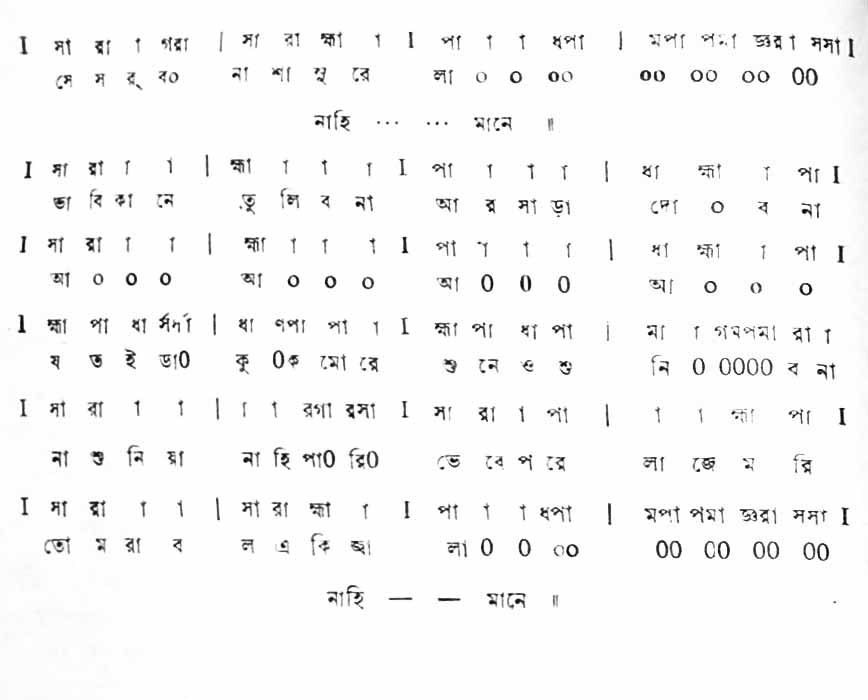 I সা রা া গরা | সা রা হ্মা া I পা া া ধপা | মপা পমা জ্ঞরা সসা I
সে স র্ ব০ না শা সু রে লা ০ ০ ০০ ০০ ০০ ০০ ০০
নাহি ... ... মানে ॥
I সা রা া া | হ্মা া া া I পা া া া | ধা হ্মা া পা I
ভা বি কা নে তু লি ব না আ র সা ড়া দো ০ ব না
I সা রা া া | হ্মা া া া I পা া া া | ধা হ্মা া পা I
আ ০ ০ ০ আ ০ ০ ০ আ ০ ০ ০ আ ০ ০ ০
I হ্মা পা ধা র্সর্না | ধা ণপা পা া I হ্মা পা ধা পা | মা া গমপমা রা া
য ত ই ডা০ কু ০ক মো রে শু নে ও শু নি ০ ০০০০ ব না
I সা রা া া | া া রগা রসা I সা রা া পা | া া হ্মা পা I
না শু নি য়া না হি পা০ রি০ ভে বে প রে লা জে ম রি
I সা রা া া | সা রা হ্মা া I পা া া ধপা | মপা পমা জ্ঞরা সসা I
তো ম রা ব ল এ কি জ্বা লা ০ ০ ০০ ০০ ০০ ০০ ০০
নাহি — — মানে ॥